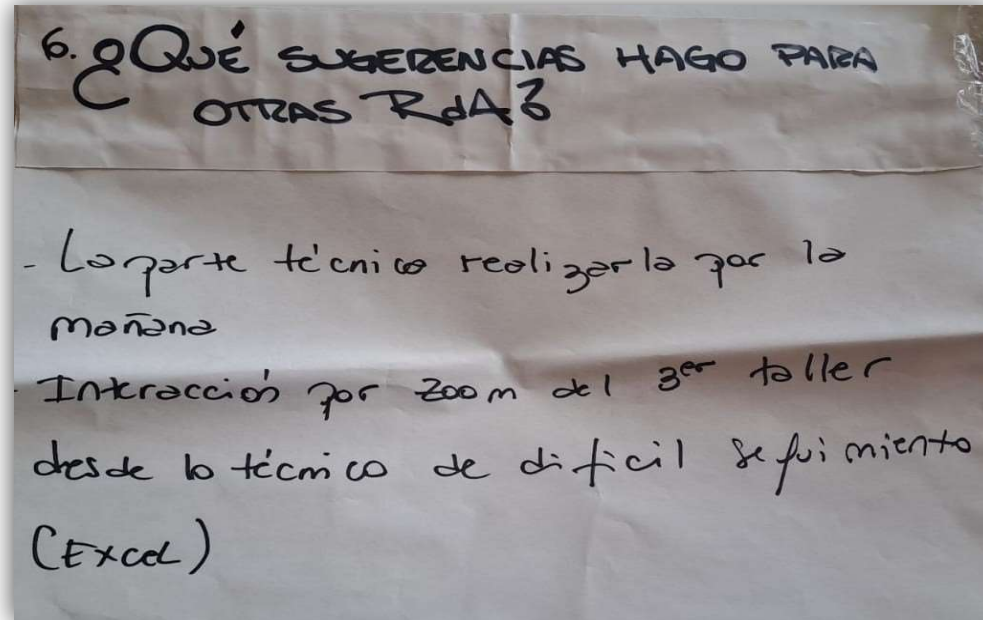 6. ¿QUÉ SUGERENCIAS HAGO PARA
OTRAS RdA?
- La parte técnica realizarla por la
mañana
- Interacción por zoom del 3er taller
desde lo técnico de dificil seguimiento
(Excel)